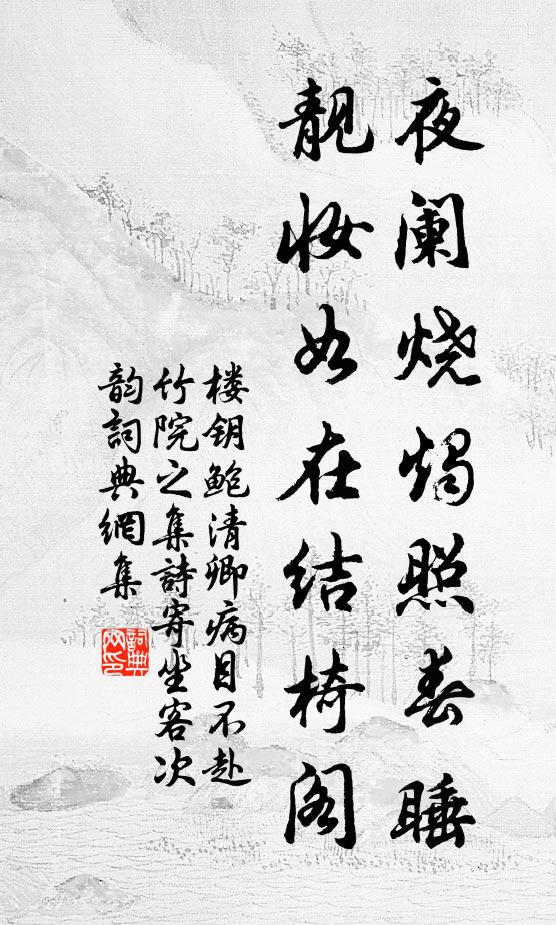 夜阑烧烛照春睡
靓妆如在结椅阁
楼钥鲍清卿病目不赴
竹院之集詩寄坐客次
韵詞典網集
詞典網印